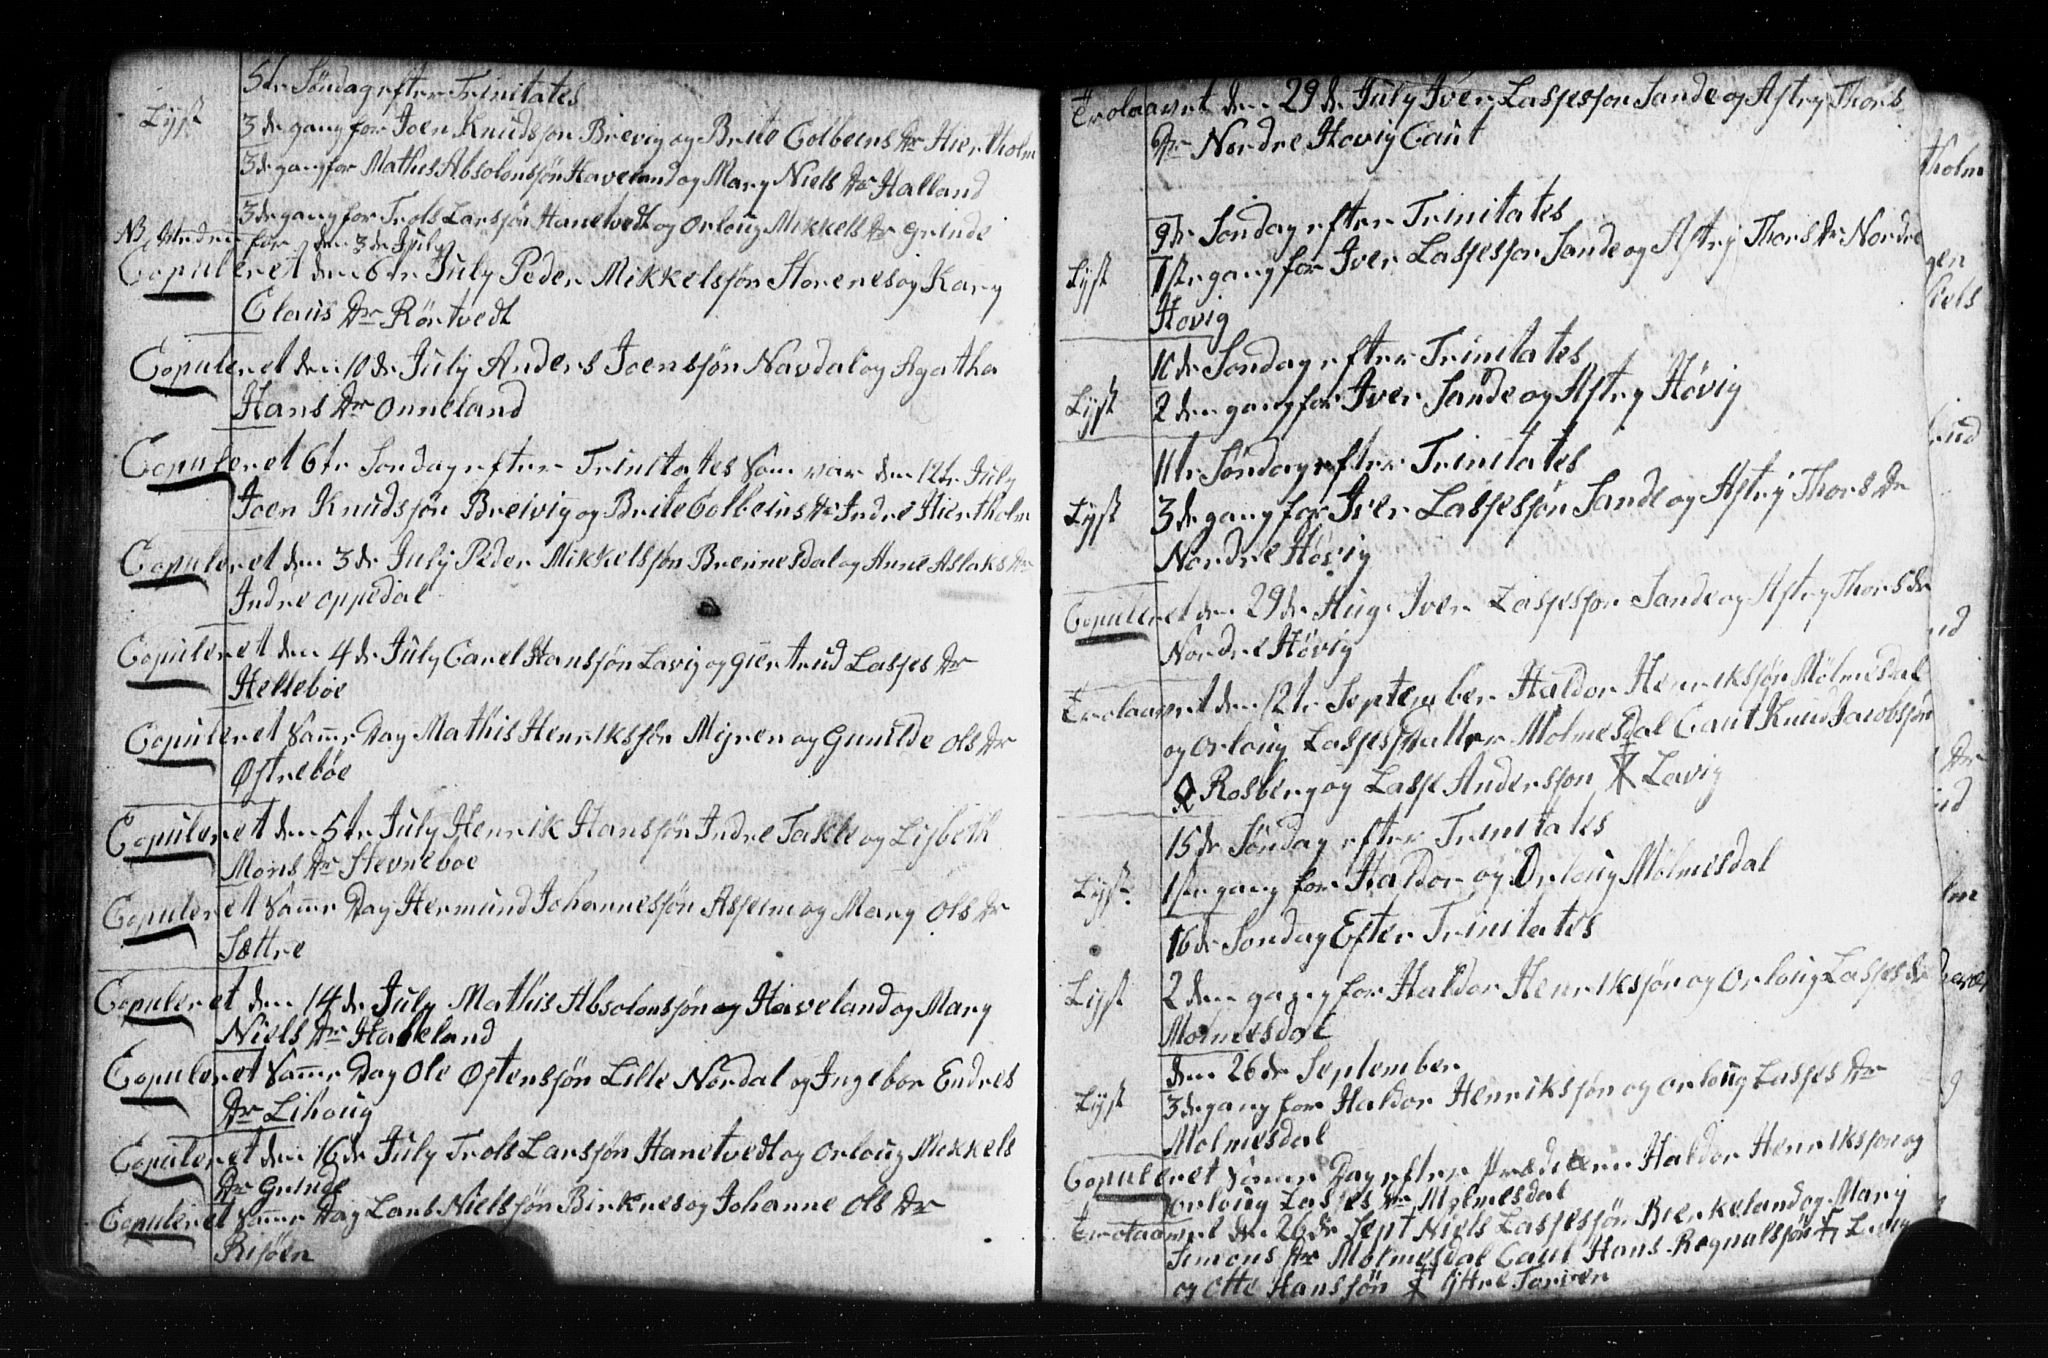 5te Söndag efter Trinitates
Lyst 3de gang for Joen Knudssøn Brevig og Brite Colbeens Dr Hiertholm
3de gang for Mathis Absolonssøn Haveland og Mary Niels Dr Halland
3de gang for Trols Larssøn Hanetvedt og Orloug Mikkels Dr Grinde
NB for den 3de July
Copuleret den 6te July Peder Mikkelssøn Storenes og Kary
Claus Dr Rörtvedt
Copuleret den 10de July Anders Joenssøn Navdal og Agatha
Hans Dr Onneland
Copuleret 6te Sondag efter Trinitates Som var den 12te July
Joen Knudssøn Breivig og Brite Colbeins Dr Indre Hiertholm
Copuleret den 3de July Peder Mikkelssøn Brennesdal og Anne Aslaks Dr
Indre Oppedal
Copuleret den 4de July Carel Hanssøn Lavig og Giertrud Lasses Dr
Hellebøe
Copuleret Samme Dag Mathis Henrikssøn Myren og Gunilde Ols Dr
Østrebøe
Copuleret den 5te July Henrik Hanssøn Indre Takle og Lisbeth
Mons Dr Stevneboe
Copuleret Samme Dag Hermund Johannessøn Asheim og Mary Ols Dr
Sættre
Copuleret den 14de July Mathis Absolonssøn og Haveland og Mary
Niels Dr Halleland
Copuleret Samme Dag Ole Østenssøn Lille Nordal og Ingebor Endres
Dr Lihoug
Copuleret den 16de July Trols Larssøn Hanetvedt og Orloug Mikkels
Dr Grinde
Copuleret Samme Dag Lars Nielssøn Birknes og Johanne Ols Dr
Risøen
Trolaavet den 29de July Iver Lassesson Sande og Astry Thors
Dr Nordre Hovig Caut
9de Sondag efter Trinitates
Lyst 1ste gang for Iver Lassesson Sande og Astry Thors Dr Nordre
Hovig
10de Sondag efter Trinitates
Lyst 2den gang for Iver Sande og Astry Hövig
11te Søndag efter Trinitates
Lyst 3de gang for Iver Lassessøn Sande og Astry Thors Dr
Nordre Høvig
Copuleret den 29de Aug: Iver Lassesson Sande og Astry Thors Dr
Nordre Hövig
Trolaavet den 12te September Haldor Henrikssøn Mölmesdal
og Orloug Lasses Datter Molmesdal Caut Knud Jacobssøn
Rosberg og Lasse Andersson Lavig
15de Söndag efter Trinitates
Lyst 1ste gang for Haldor og Orloug Mölmesdal
16de Sondag Efter Trinitates
Lyst 2den gang for Haldor Henrikssøn og Orloug Lasses Dr
Molmesdal
den 26de September
Lyst 3de gang for Haldor Henrikssøn og Orloug Lasses Dr
Molmesdal
Copuleret Samme Dag efter Haldor Henriksson og
Orloug Lasses Dr Molmesdal
Trolaavet den 26de Sept Niels Lassessøn Bierkeland og Mary
Simons Dr Molmesdal Caut Hans Rognalssøn
og Otte Hanssøn Torver